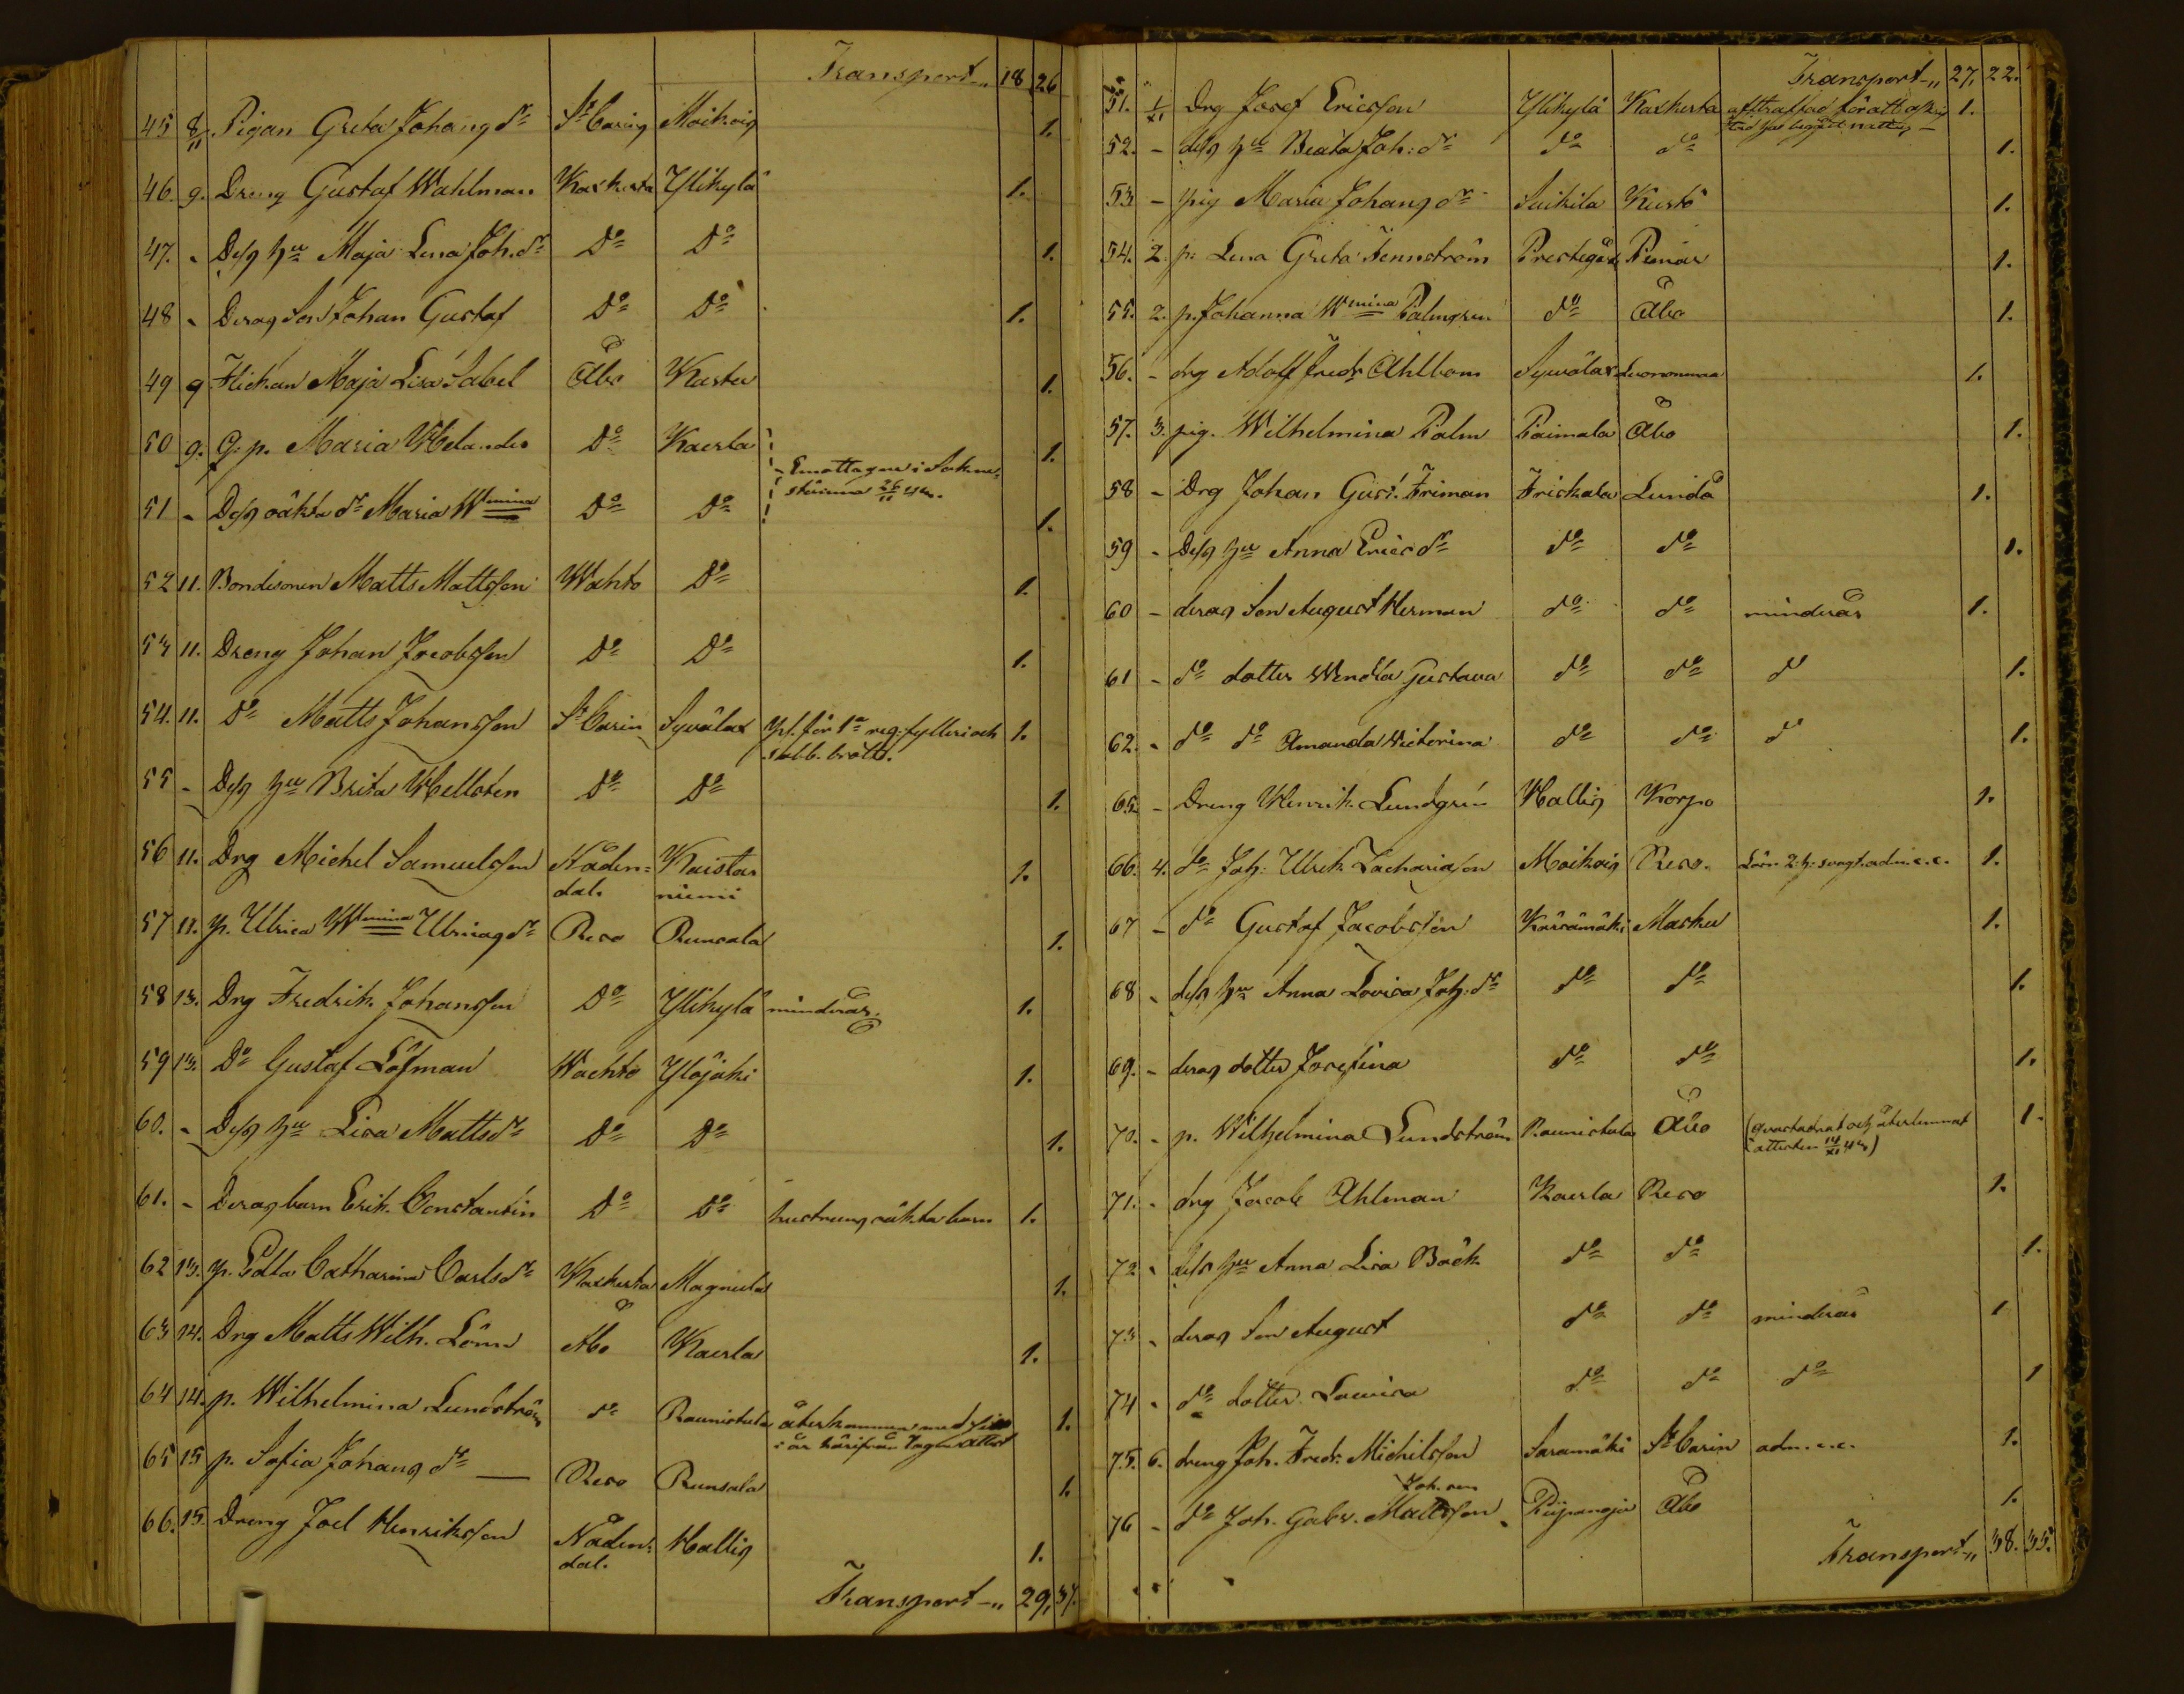 Transport „ 18 26
45 8/11 Pigan Greta Johansdr St Carins Moikois 1.
46. 9. Dreng Gustaf Wahlman Kaxkerta Ylikylä 1.
47. - Dess hu Maja Lena Joh.dr Do Do 1.
48 - Deras Son Johan Gustaf Do Do 1.
49 9 Flickan Maja Lisa Sabel Åbo Kaster 1.
50 9. G. p. Maria Melander Do Kaerla 1.
Emottagne i Sockne-
stämma 26/11 42.
51 - Dess oäkta dr Maria Wmina Do Do 1.
52 11. Bondesonen Matts Mattsson Wahto Do 1.
53 11. Dreng Johan Jacobsson Do Do 1.
54. 11. Do Matts Johansson St Carin Syvälax Pl. för 1a reg. fylleri och 1.
sabb. brott.
55 - Dess hu Brita Hellstén Do Do 1.
56 11. Drg Michel Samuelsson Nåden= Kaistar 1.
dal. niemi
57 11. p. Ulrica Wmina Ulricasdr Reso Runsala 1.
58 13. Drg Fredrik Johansson Do Ylikylä minderår. 1.
59 13. Do Gustaf Löfman Wachto Yläjoki 1.
60. - Dess hu Lisa Mattsdr Do Do 1.
61. - Deras barn Erik Constantin Do Do hustruns oäkta barn 1.
62 13. p. Edla Catharina Carlsdr Kaxkerta Magnula 1.
63 14. Drg Matts Wilh. Lönn Åbo Kaerla 1.
64 14. p. Wilhelmina Lundström do Raunistula återkommen med sin 1.
i år härifrån tagna attest
65 15 p. Sofia Johansdr — Reso Runsala 1.
66. 15. Dreng Joel Henriksson Nåden= Hallis 1.
dal.
Transport „ 29, 37.
Transport „ 27, 22.
51. 1/XI Drg Josef Ericsson Ylikylä Kaxkerta 1.
52. - dess hu Beata Joh: dr do do 1.
53 - pig Maria Johansdr Suikila Kustö 1.
54. 2. p. Lena Greta Hennström Prestegård Pemar 1.
55. 2. p. Johanna Wmina Palmgren do Åbo 1.
56. - drg Adolf Fredr Ahlbom Syvälax Luonnonmaa 1.
57. 3. pig. Wilhelmina Palm Paimala Åbo 1.
58 - Drg Johan Gust. Friman Friskala Lundå 1.
59 - Dess hu Anna Ericsdr do do 1.
60 - deras Son August Herman do do minderår 1.
61 - do dotter Wendla Gustava do do do 1.
62. - do do Amanda Victorina do do do 1.
65. - Dreng Henrik Lundgrén Hallis Korpo 1.
66. 4. do Joh: Ulrik Zachariasson Moikois Reso. Läsn. 2: h: svagt. adm. c. c. 1.
67 - do Gustaf Jacobsson Kärsämäki Masku 1.
68 - dess hu Anna Lovisa Joh: dr do do 1.
69. - deras dotter Josefina do do 1.
70. - p. Wilhelmina Lundström Raunistula Åbo (qvarstadnat och återlemnat 1.
attesten 14/XI 42)
71. - drg Jacob Ahlman Kaerla Reso 1.
72. - dess hu Anna Lisa Bäck do do 1.
73 - deras Son August do do minderår 1
74 - do dotter Lowisa do do do 1
75. 6. dreng Joh. Fredr. Michelsson Saramäki St Carin adm. c. c. 1.
Joh.son
76 - do Joh. Gabr. Mattsson Åbo 1.
Transport „ 38. 35.